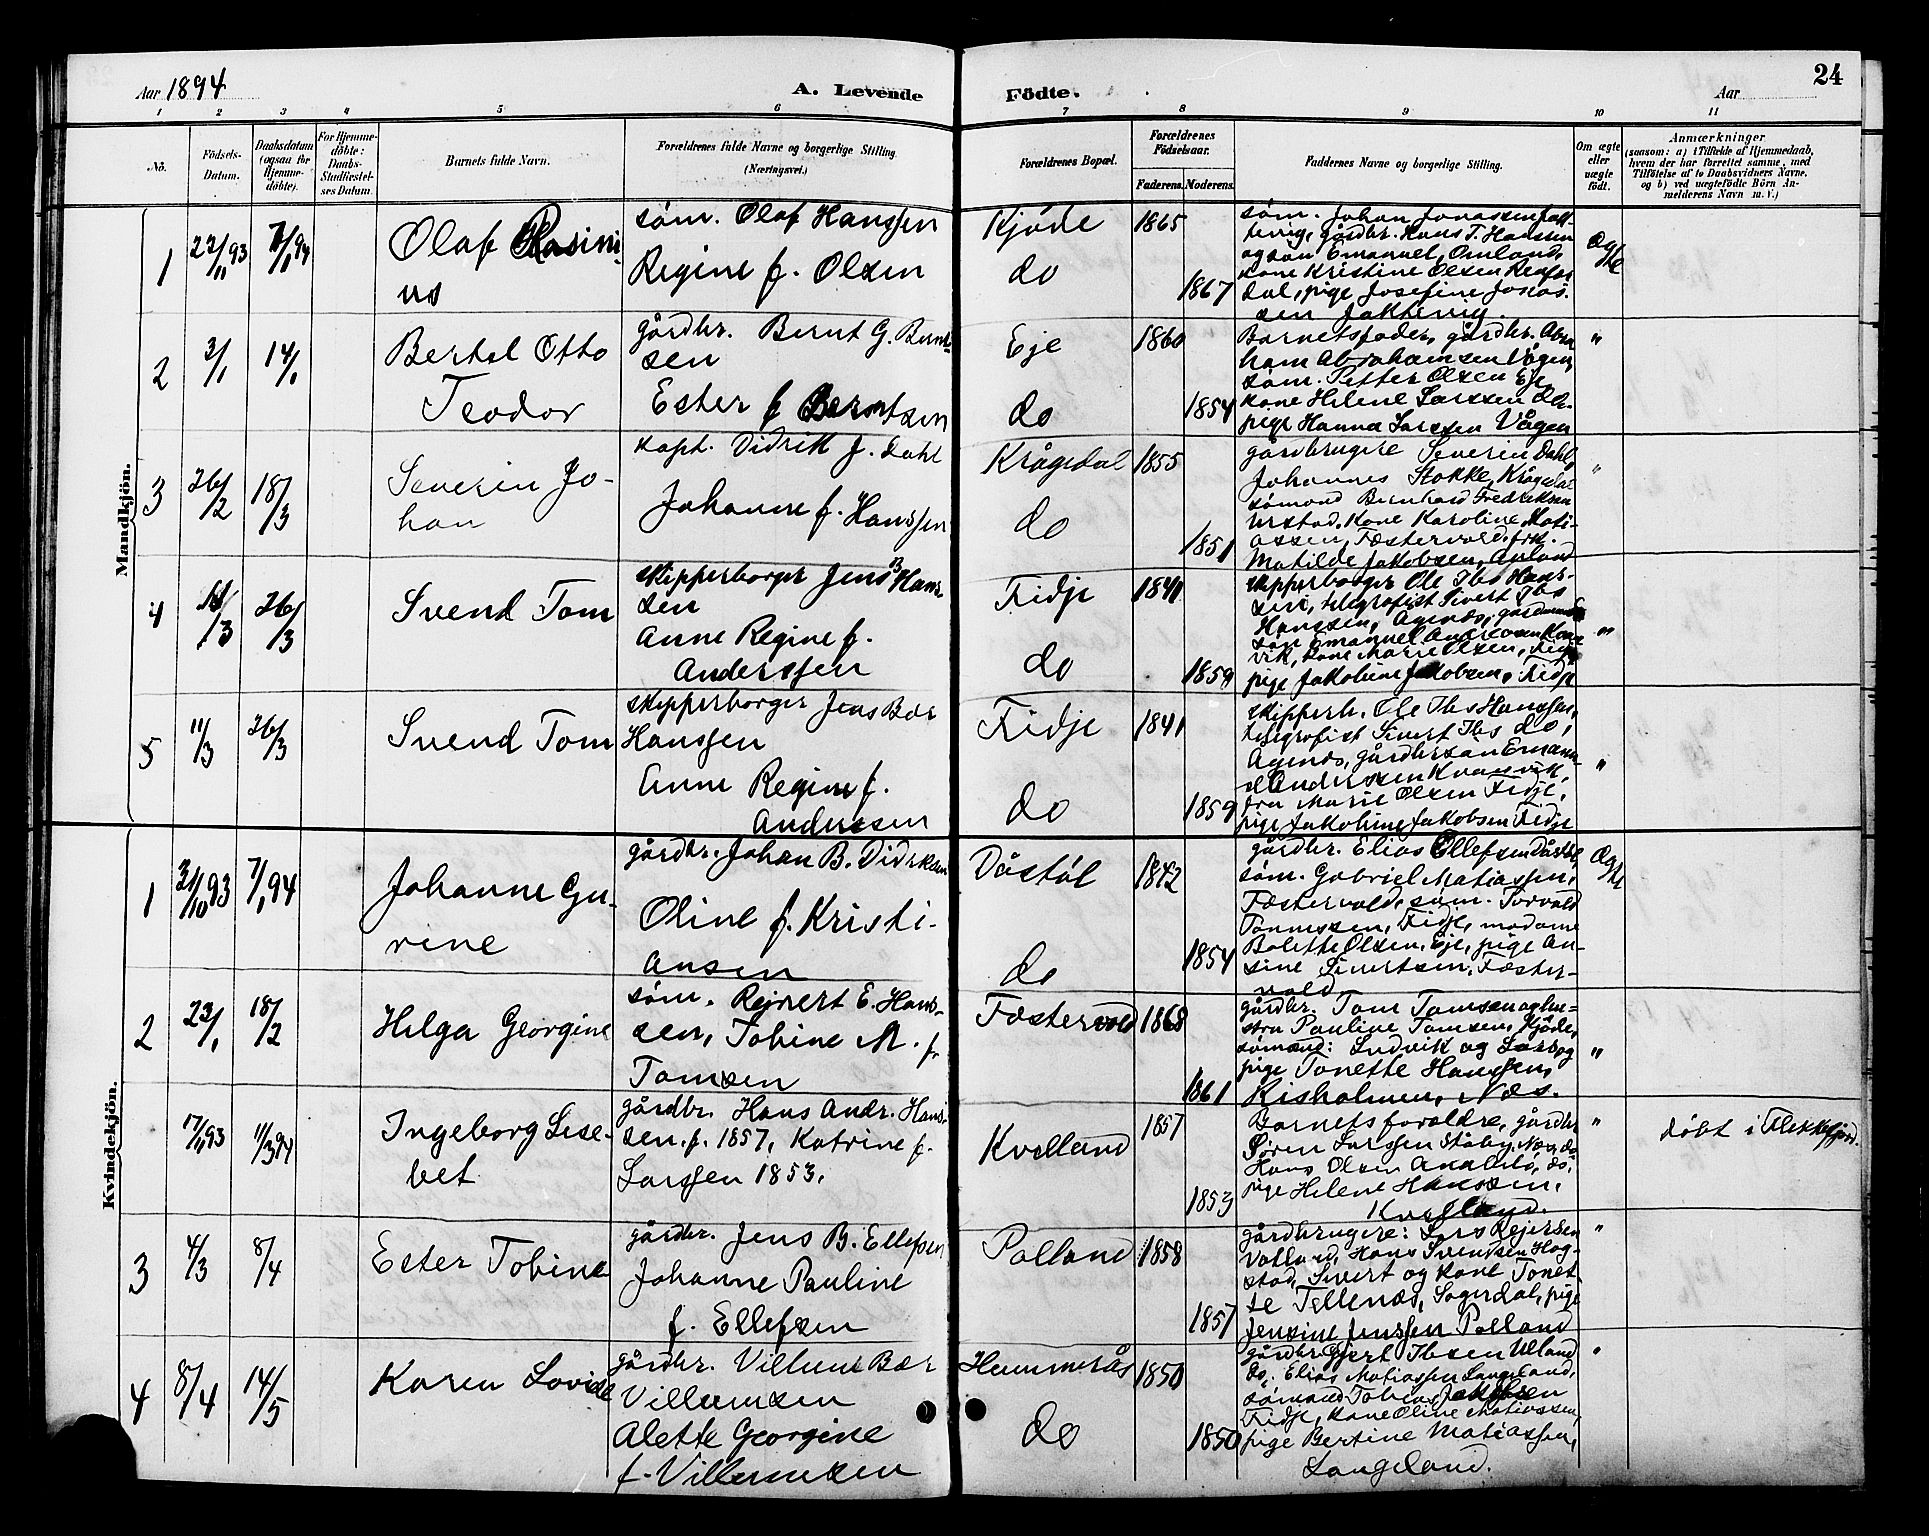 Aar 1894
A. Levende
Födte.
Aar
24
1 2 3 4 5 6 7 8 9 10 11
No.
Födsels-
Datum.
Daabsdatum
(ogsaa for
Hjemme-
döbte).
For Hjemme-
döbte:
Daabs-
Stadfæstel-
ses Datum.
Barnets fulde Navn.
Forældrenes fulde Navne og borgerlige Stilling.
(Næringsvei.)
Forældrenes Bopæl.
Forældrenes
Födselsaar.
Faderens. Moderens.
Faddernes Navne og borgerlige Stilling.
Om ægte
eller
uægte
födt.
Anmærkninger
(saasom: a) i Tilfælde af Hjemmedaab,
hvem der har forrettet samme, med
Tilföielse af to Daabsvidners Navne,
og b) ved uægtefödte Börn An-
melderens Navn m. V.)
Mandkjön.
1
22/11 93
7/1 94
Olaf Rasini-
us
söm. Olaf Hanssen
Regine f. Olsen
Kjöde
do
1865
1867
söm. Johan Jonassen Jakt-
tevig, gårdbr. Hans T. Hanssen
og søn Emanuel, Omland,
kone Kristine Olsen Refso-
dal, pige Josefine Jonas-
sen Jaktevig.
Ægte
2
3/1
14/1
Bertel Otto
Teodor
gårdbr. Bernt G. Bernt-
sen
Ester f. Berntsen
Eje
do
1860
1854
Barnets fader, gårdbr. Abra-
ham Abrahamsen Vågen,
söm. Petter Olsen Eje,
kone Helene Larssen do,
pige Hanna Larssen Vågen
"
3
26/2
18/3
Severin Jo-
han
kapt. Vidrik J. Dahl
Johanne f. Hanssen
Krågedal
do
1855
1851
gårdbrugere Severin Dahl,
Johannes Stokke, Krågedal
sömand Bernhard Fredriksen
Urstad, Kone Karoline Mati-
assen, Fæstervold, frk.
Matilde Jakobsen, Anland
"
4
11/3
26/3
Svend Tom
skipperborger Jens B Hans-
sen
Anne Regine f.
Anderssen
Fidje
do
1841
1859
skipperborger Ole Ibs Hans-
sen, telegrafist Sivert Ibs
Hanssen, Agenæs, gårdmands
søn Emanuel Andreasen Kvan-
vik, kone Marie Olsen, Fidje
pige Jakobine Jakobsen, Fidje
"
5
11/3
26/3
Svend Tom
skipperborger Jens Bær
Hanssen
Anne Regine f.
Andersen
Fidje
do
1841
1859
skipperb. Ole Ibs Hanssen,
telegrafist Sivert Ibs do,
Agenæs, gårdbr.søn Emanu-
el Anderssen Kvanvik,
fru Marie Olsen Fidje,
pige Jakobine Jakobsen Fidje
"
Kvindekjön.
1
31/10 93
7/1 94
Johanne Gu-
rine
gårdbr. Johan B. Didriksen
Oline f. Kristi-
ansen
Dåstöl
do
1842
1854
gårdbr. Elias Ellefsen Dåstöl,
söm. Gabriel Matiassen,
Fæstervold, söm. Torvald
Tönnessen, Fidje, madame
Bolette Olsen, Eje, pige An-
sine Sivertsen, Fæster-
vold
Ægte
2
22/1
18/2
Helga Georgine
söm. Rejnert E. Hans-
sen, Tobine M. f.
Tomsen
Fæstervold
1868
1861
gårdbr. Tom Tomsen og hu-
stru Pauline Tomsen, Kjöde,
sömænd: Ludvik og Lars og
pige Tonette Hanssen,
Risholmen, Næs.
"
17/11 93
11/3 94
Ingeborg Lise-
bet
gårdbr. Hans Andr. Hans-
sen. f. 1857, Katrine f.
Larssen 1853.
Kvelland
1857
1853
Barnets forældre, gårdbr
Sören Larssen Ståby, Næs, do
Hans Olsen Anabelö, do,
pige Helene Hanssen,
Kvelland.
"
döbt i Flekkefjord.
3
4/3
8/4
Ester Tobine
gårdbr. Jens B. Ellefsen
Johanne Pauline
f. Ellefsen
Polland
1858
1857
gårdbrugere: Lars Rejersen
Votland, Hans Svendsen Hog-
stad, Sivert og kone Tonet-
te Tellenæs, Sogndal, pige
Jensine Jenssen Polland
"
4
8/4
14/5
Karen Lovise
gårdbr. Villum Bær
Villumsen
Alette Georgine
f. Villumsen
Hammerås
do
1850
1850
gårdbr. Gjert Ibsen Ulland
do. Elias Matiassen Langeland,
sömand Tobias Jakobsen
Fidje, kone Oline Matiassen,
pige Bertine Matiassen,
Langeland.
"